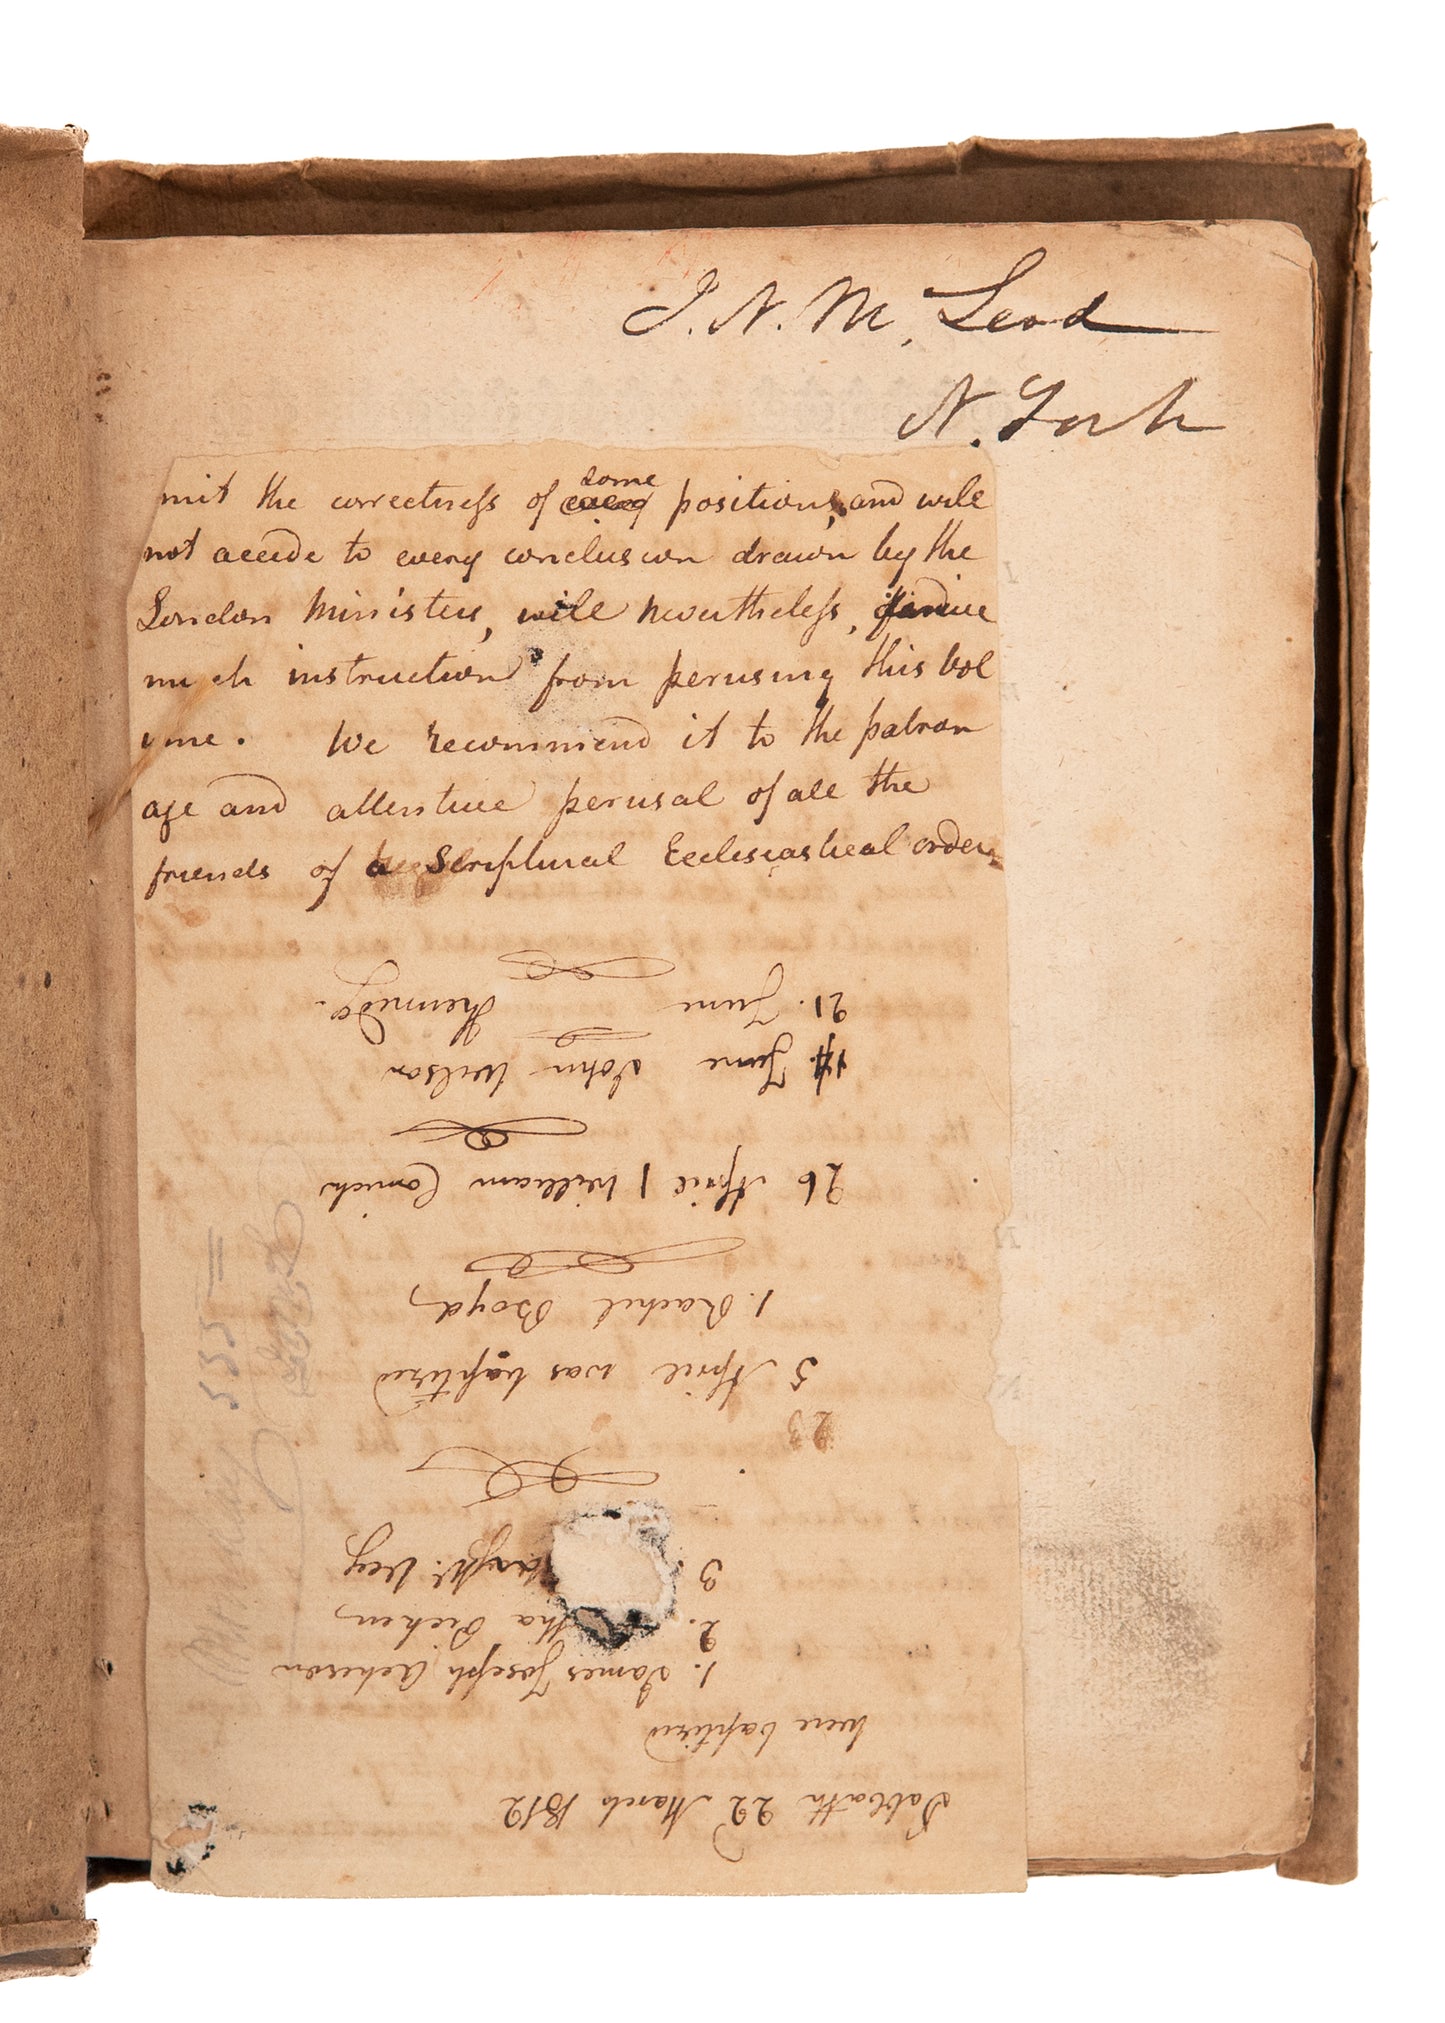 J. N. Mc. Leod
N. York
mit the correctness of some positions, and will
not accede to every conclusion drawn by the
London Ministers, will nevertheless,
much instruction from perusing this vol
ume. We recommend it to the patron
age and attentive perusal of all the
friends of a Scriptural Ecclesiastical order
Sabbath 22 March 1812
were baptized
1. James Joseph Acheson
2. tha Dicken
3
23
5 April was baptized
1. Rachel Boyd
26 April 1 William
14. June John Wilson
21. June Kennedy.